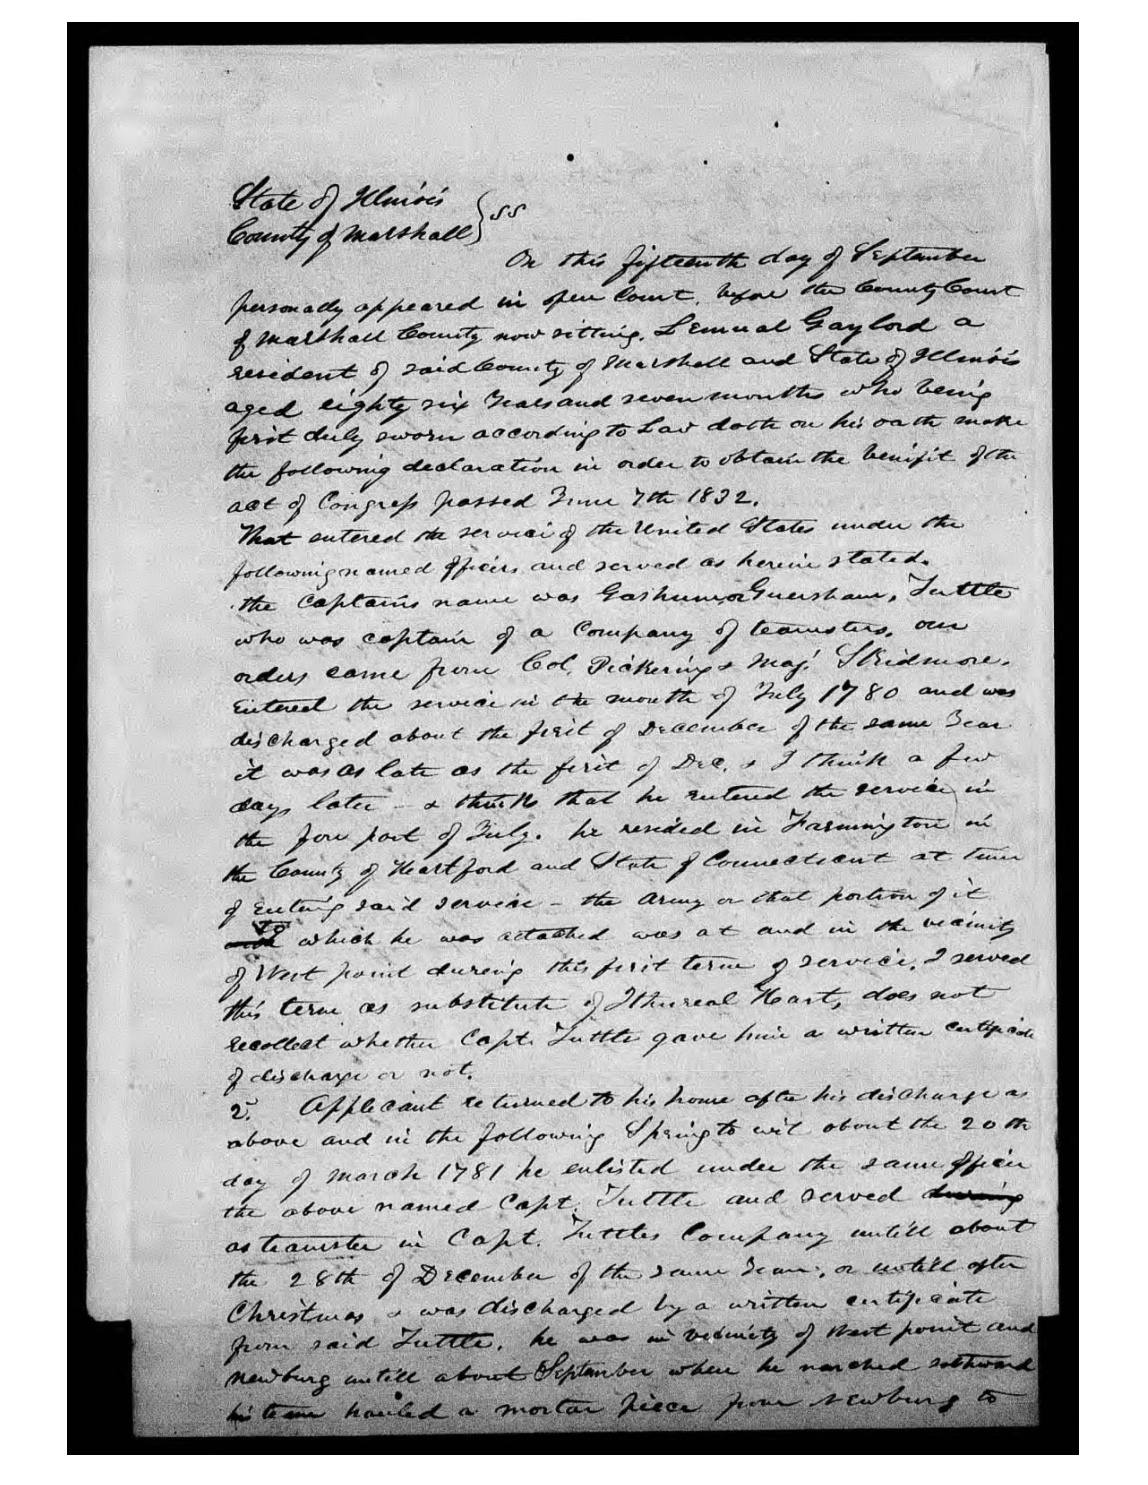 State of Illinois
County of Marshall } SS
On this fifteenth day of September
personally appeared in open Court, before the County Court
of Marshall County now sitting, Lemual Gaylord a
resident of said County of Marshall and State of Illinois
aged eighty six Years and seven months who being
first duly sworn according to Law doth on his oath make
the following declaration in order to obtain the benifit of the
act of Congress passed June 7th 1832.
That entered the service of the United States under the
following named officers and served as herein stated.
the Captains name was Gashum or Guersham, Tuttle
who was captain of a Company of teamsters, our
orders came from Col. Pickering & Maj. Skidmore.
Entered the service in the month of July 1780 and was
discharged about the first of December of the same Year
it was as late as the first of Dec. & I think a few
days later - & think that he entered the service in
the fore part of July. he resided in Farmington in
the County of Heartford and State of Connecticut at time
of Entering said service - the Army or that portion of it
to which he was attached was at and in the vicinity
of West point dureing this first term of service. I served
this term as substitute of Ithureal Hart, does not
recollect whether Capt. Tuttle gave him a written certificate
of discharge or not.
2. Applicant returned to his home after his discharge as
above and in the following Spring to wit about the 20th
day of March 1781 he enlisted under the same officer
the above named Capt. Tuttle and served during
as teamster in Capt. Tuttles Company untill about
the 28th of December of the same Year, or untill after
Christmas & was discharged by a written certificate
from said Tuttle. he was in vicinity of West point and
Newburg untill about September when he marched southward
his team hauled a mortar piece from Newburg to